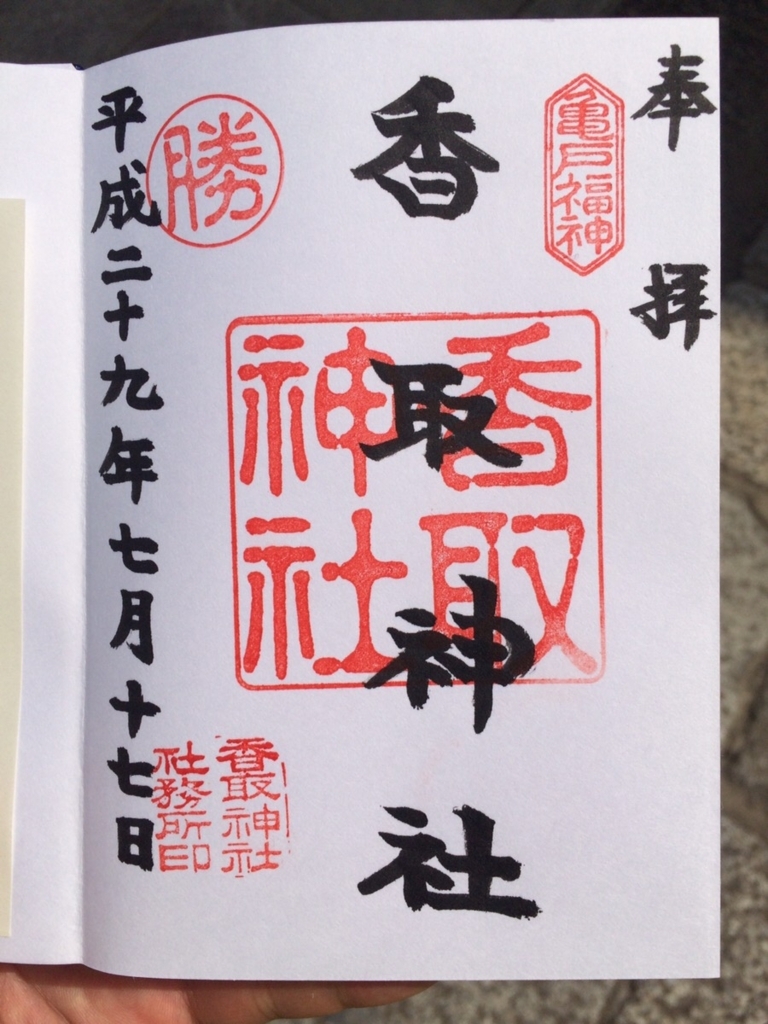 奉拝
亀戸福神
香取神社
香取神社
勝
平成二十九年七月十七日
香取神社
社務所印